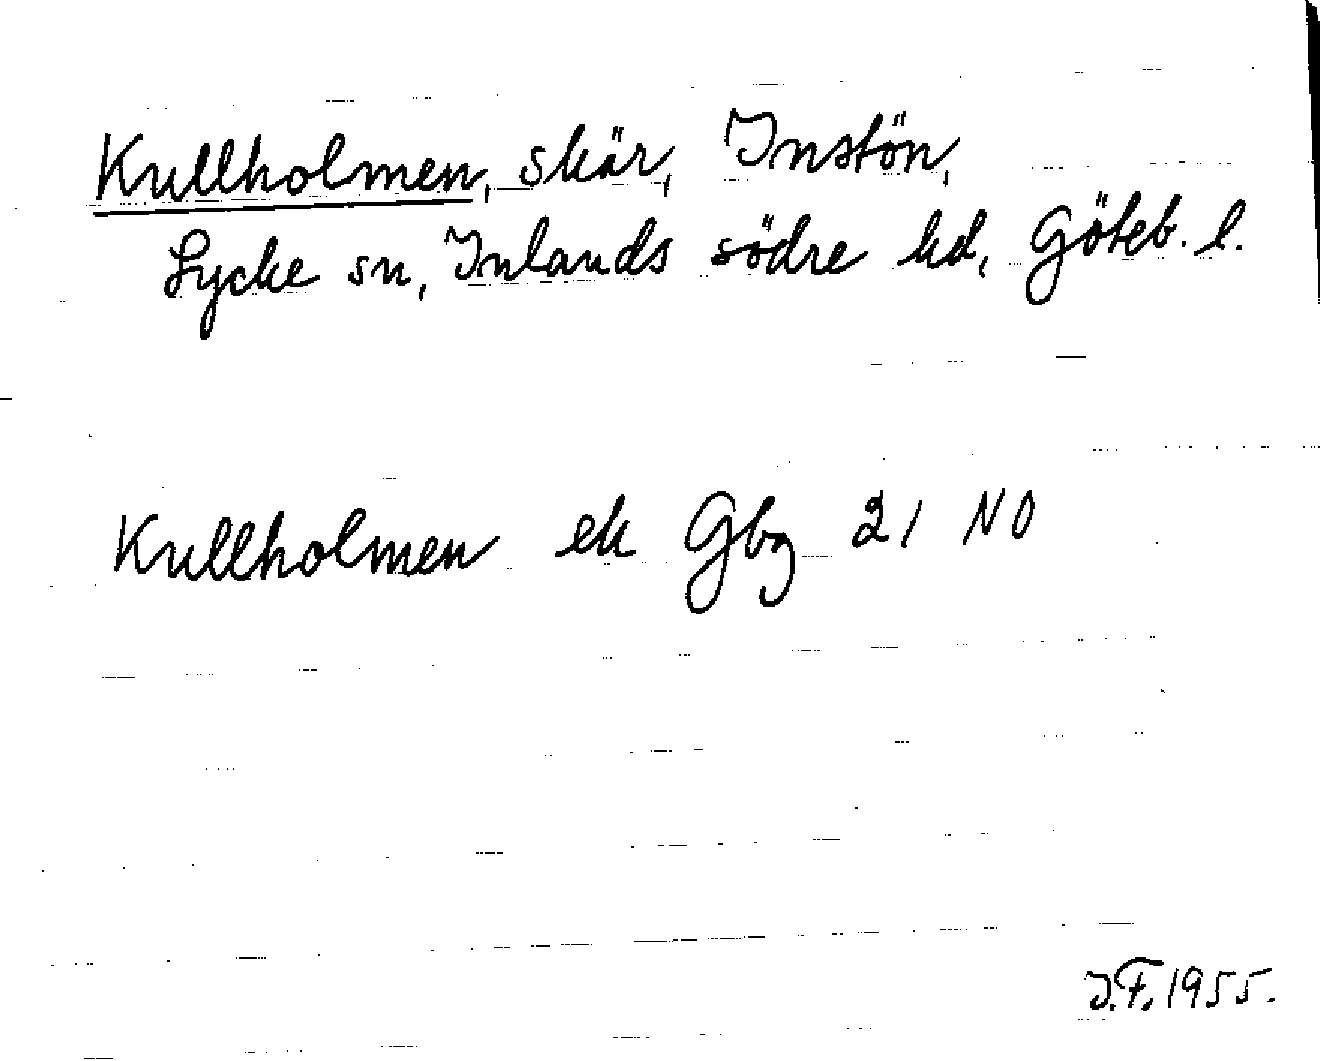 Kullholmen, skär, Instön,
Lycke sn, Inlands södre hd, Göteb. l.
Kullholmen ek Gbg 21 NO
J.F. 1955.